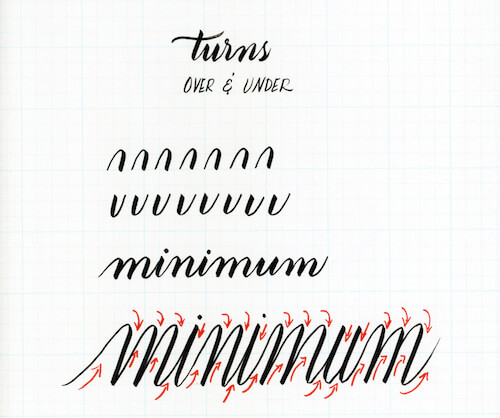 turns
OVER & UNDER
minimum
minimum